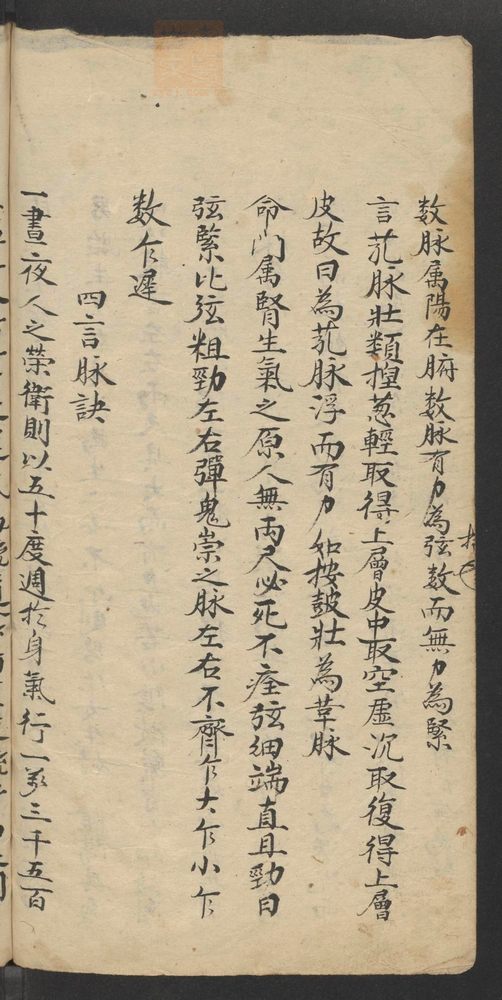 数脉属陽在腑数脉有力為弦数而無力為緊
言芤脉壮類揑葱輕取得上層皮中取空虛沉取復得上層
皮故曰為芤脉浮而有力如按皷壮為革脉
命门属腎生氣之原人無両尺必死不痊弦細端直且勁曰
弦緊比弦粗勁左右彈鬼祟之脉左右不齊乍大乍小乍
数乍遲
四言脉訣
一晝夜人之榮衛則以五十度週於身氣行一万三千五百